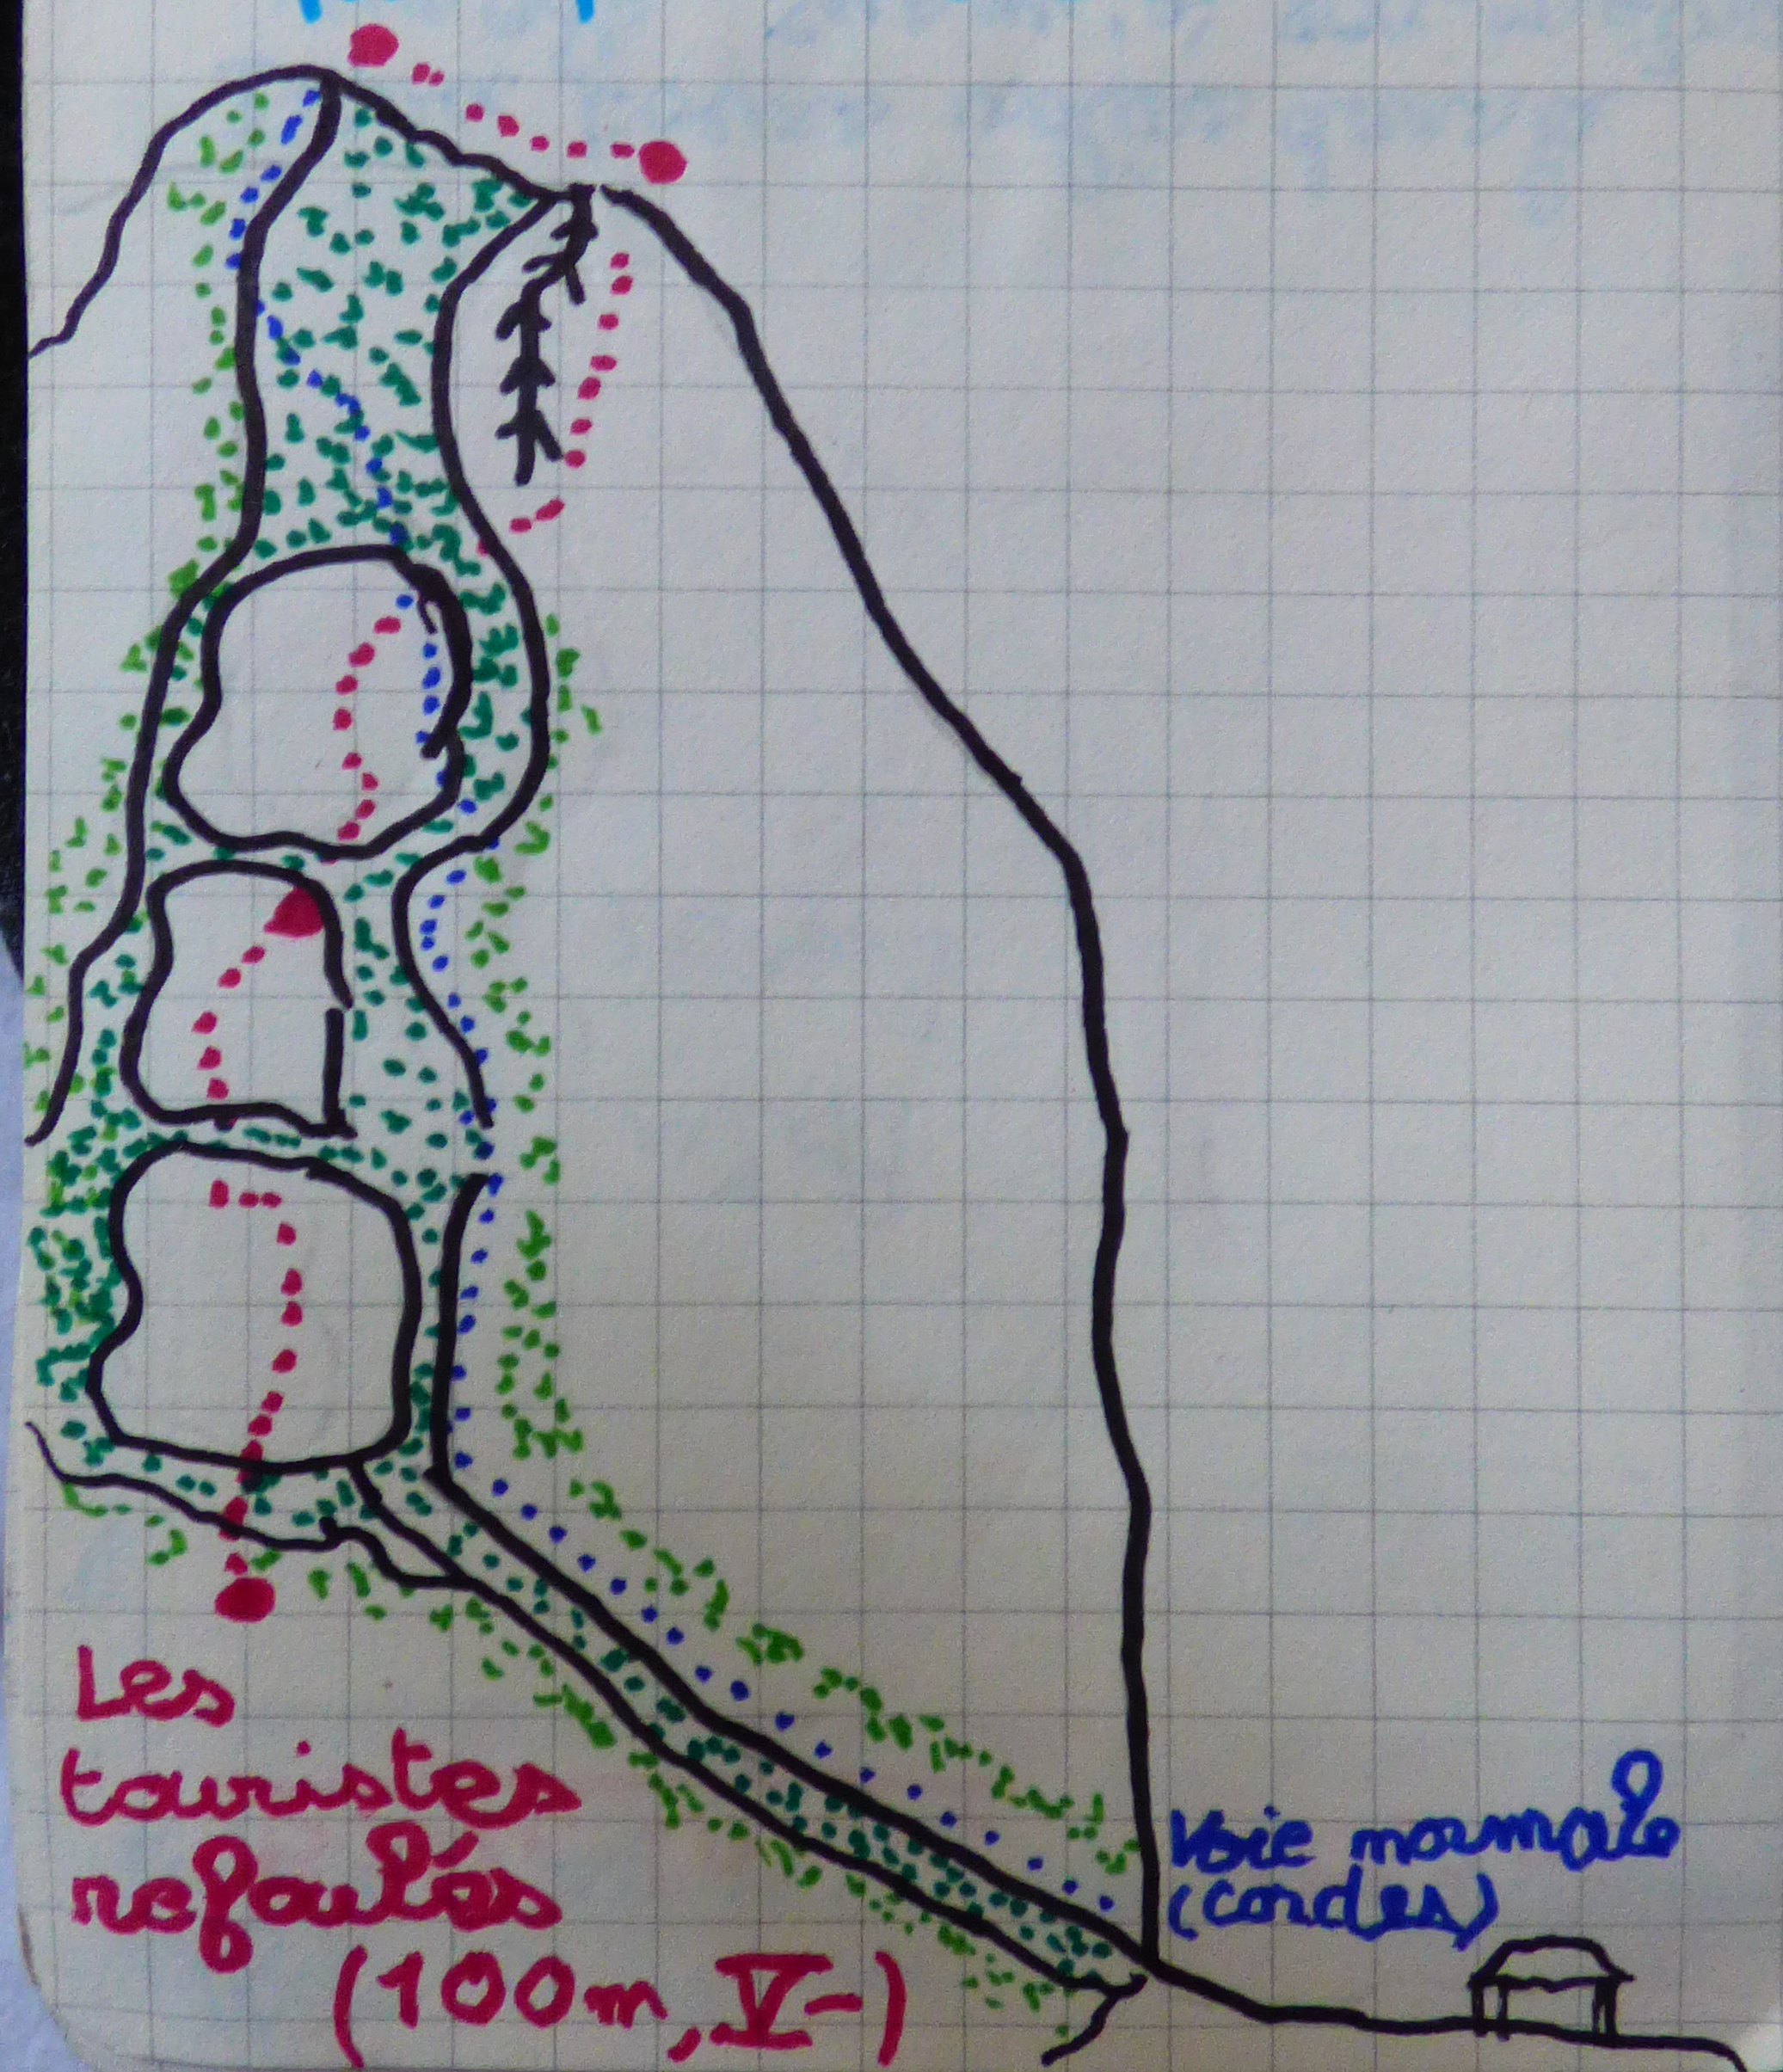 Les
touristes
refoulés
(100m, V-)
Voie normale
(cordes)